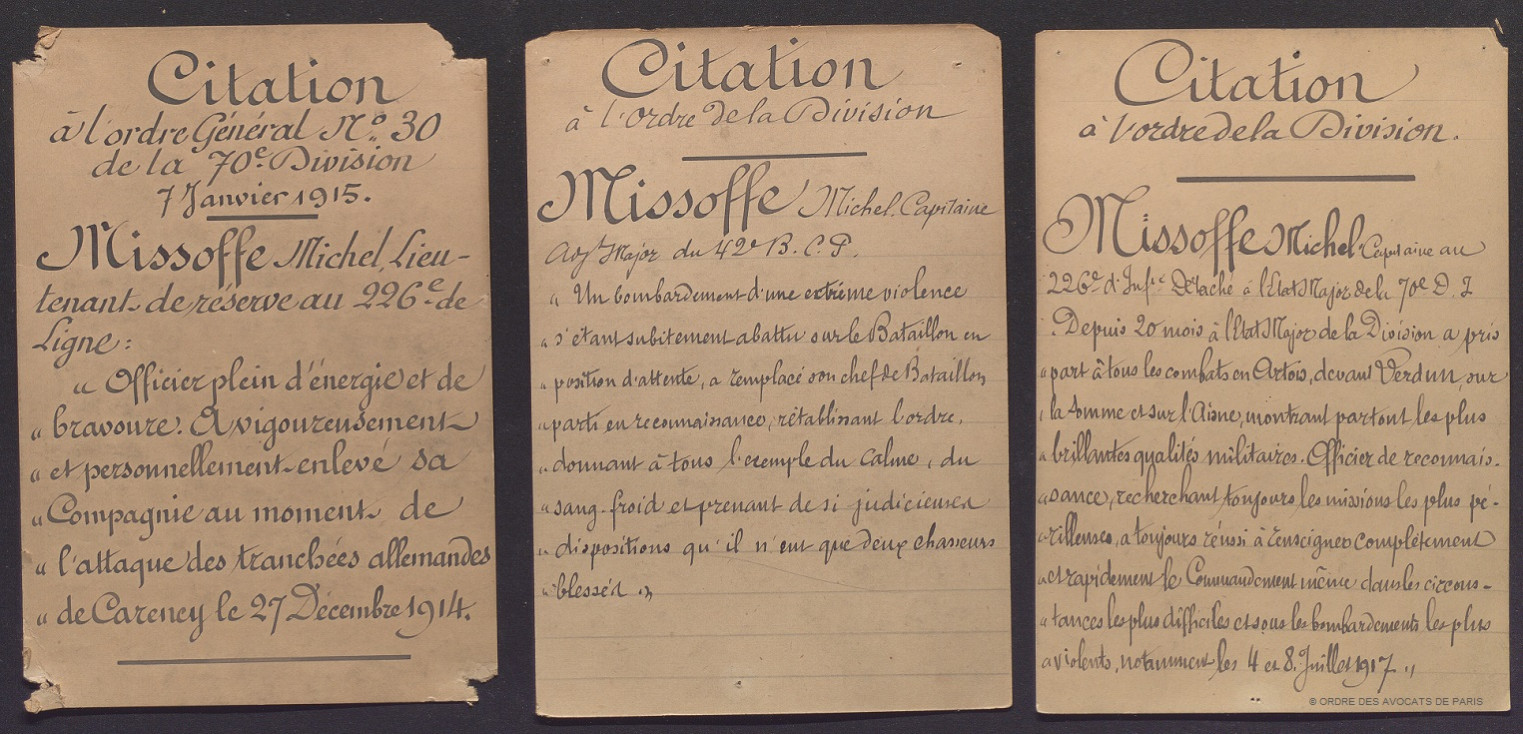 Citation
à l'ordre Général No. 30
de la 70e. Division
7 Janvier 1915.
Missoffe Michel, Lieu-
tenant de réserve au 226e. de
Ligne:
" Officier plein d'énergie et de
" bravoure. A vigoureusement
" et personnellement enlevé sa
" Compagnie au moment de
" l'attaque des tranchées allemandes
" de Carency le 27 Décembre 1914.
Citation
à l'ordre de la Division
Missoffe Michel. Capitaine
Adjt Major du 42e B.C.P.
" Un bombardement d'une extrême violence
" s'étant subitement abattu sur le Bataillon en
" position d'attente, a remplacé son chef de Bataillon
" parti en reconnaissance, rétablissant l'ordre,
" donnant à tous l'exemple du calme, du
" sang-froid et prenant de si judicieuses
" dispositions qu'il n'eut que deux chasseurs
" blessés. "
Citation
à l'ordre de la Division.
Missoffe Michel. Capitaine au
226e d'Infie Détaché à l'Etat Major de la 70e D.I
. Depuis 20 mois à l'Etat Major de la Division a pris
" part à tous les combats en Artois, devant Verdun, sur
" la Somme et sur l'Aisne, montrant partout les plus
" brillantes qualités militaires. Officier de reconnais-
" sance, recherchant toujours les missions les plus pé-
" rilleuses, a toujours réussi à renseigner complètement
" et rapidement le Commandement même dans les circons-
" tances les plus difficiles et sous les bombardements les plus
" violents, notamment les 4 et 8. Juillet 1917. "
© ORDRE DES AVOCATS DE PARIS